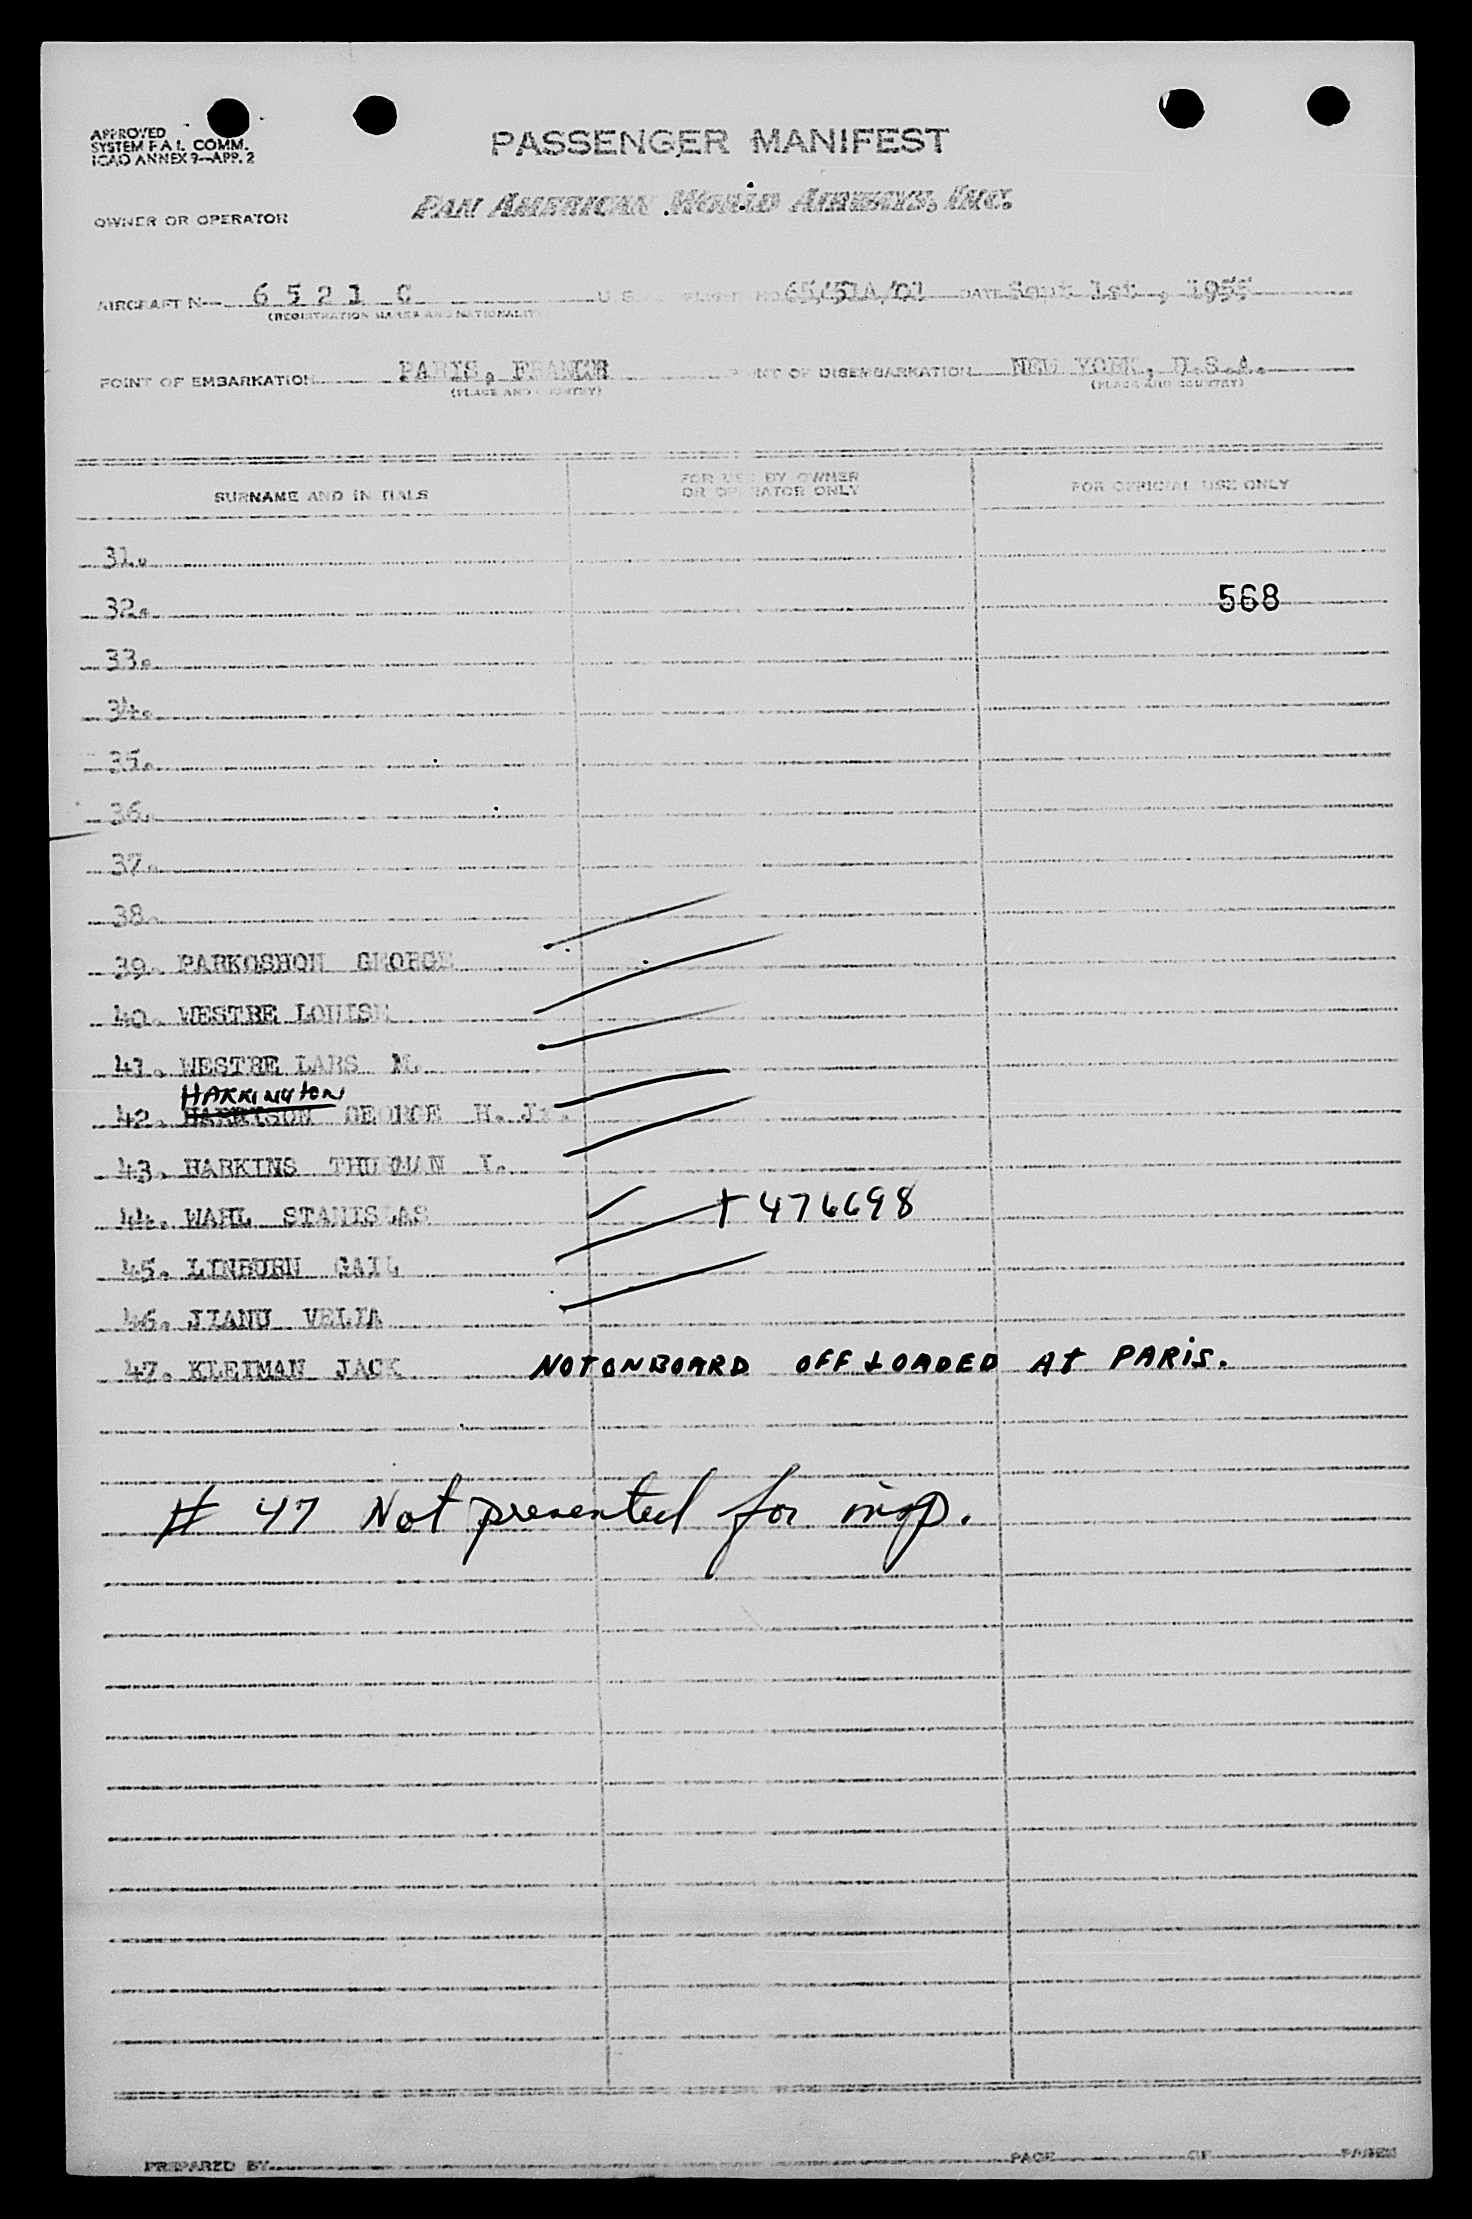 APPROVED
SYSTEM F A L COMM.
ICAO ANNEX 9—APP. 2
PASSENGER MANIFEST
OWNER OR OPERATOR PAN AMERICAN WORLD AIRWAYS, INC.
AIRCRAFT N 6 5 2 1 C U.S. FLIGHT NO 65/51A/01 DATE Sept 1st , 1955
(REGISTRATION MARKS AND NATIONALITY)
POINT OF EMBARKATION PARIS, FRANCE POINT OF DISEMBARKATION NEW YORK, U.S.A.
(PLACE AND COUNTRY) (PLACE AND COUNTRY)
SURNAME AND INITIALS FOR USE BY OWNER OR OPERATOR ONLY FOR OFFICIAL USE ONLY
31.
32. 568
33.
34.
35.
36.
37.
38.
39. PARKOSHON GEORGE
40. WESTRE LOUISE
41. WESTRE LARS M.
HARRINGTON
42. HARRISON GEORGE H. Jr.
43. HARKINS THURMAN I.
44. WAHL STANISLAS T 476698
45. LINBURN GAIL
46. JIANU VELIA
47. KLEIMAN JACK NOT ONBOARD OFFLOADED At PARIS.
# 47 Not presented for insp.
PREPARED BY PAGE OF PAGES